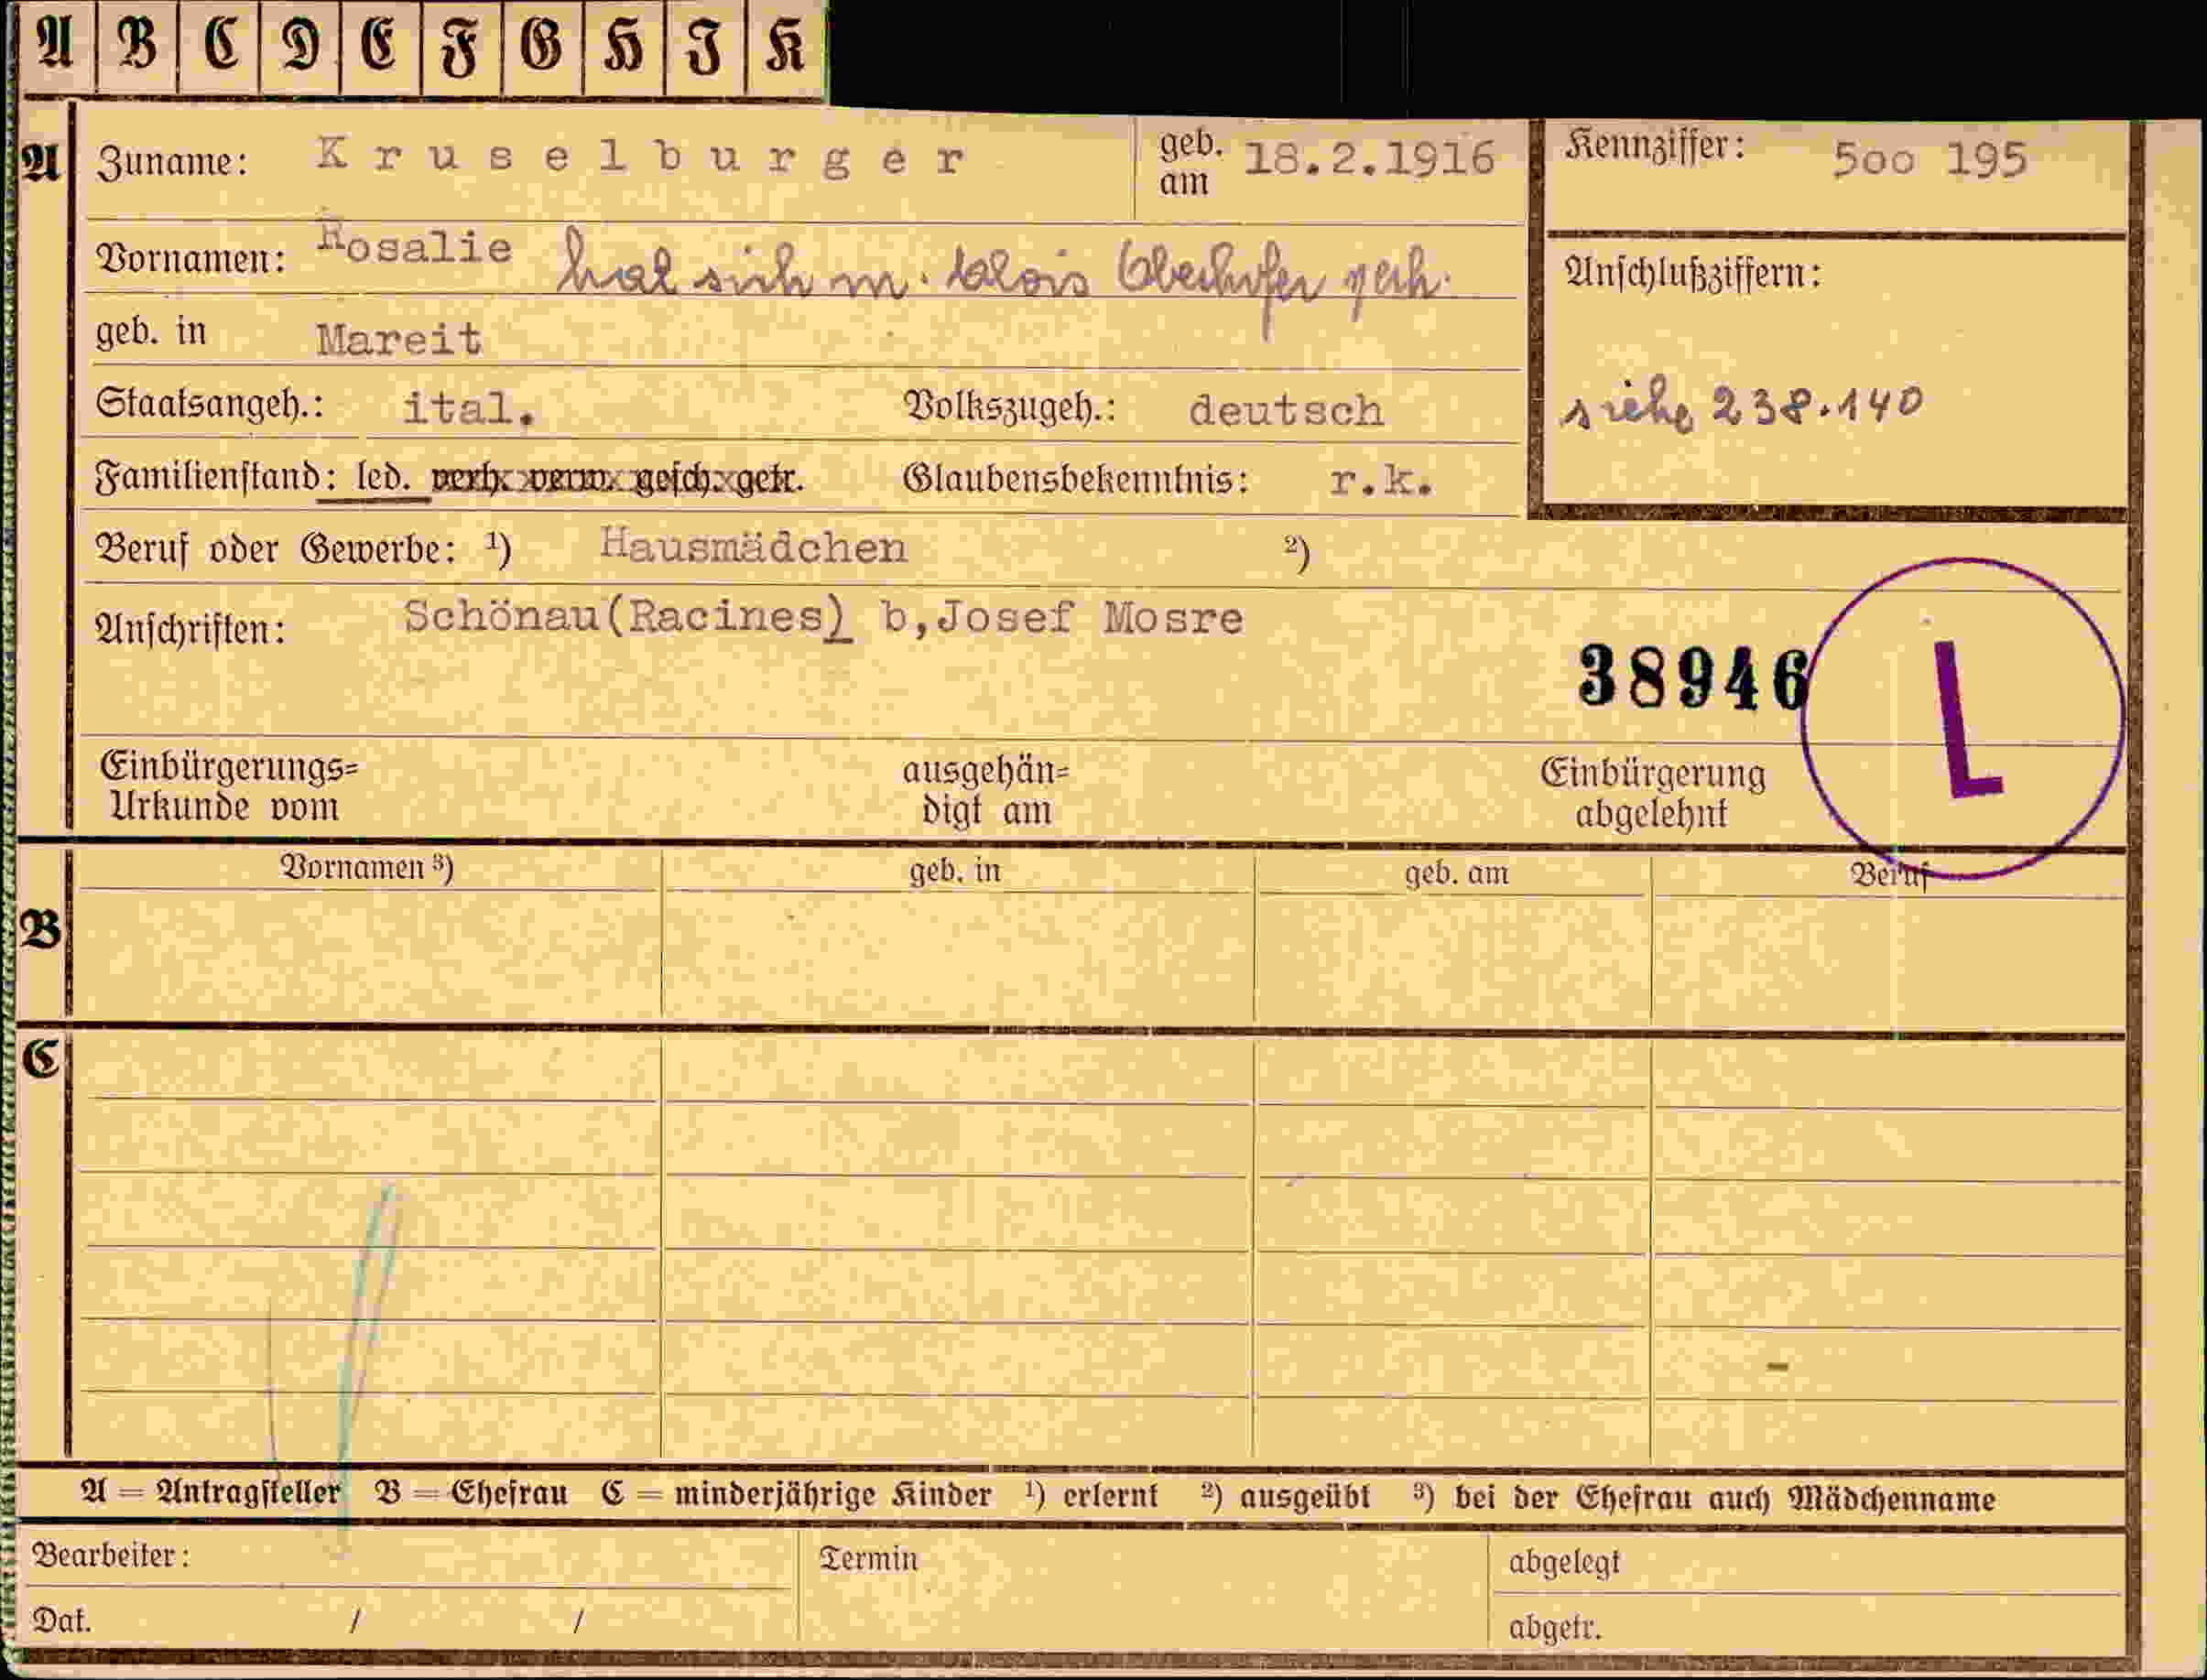 A B C D E F G H J K
A Zuname: Kruselburger geb. am 18.2.1916 Kennziffer: 5oo 195
Vornamen: Rosalie hat sich m. Alois Oberhofer verh. Anschlußziffern:
geb. in Mareit
Staatsangeh.: ital. Volkszugeh.: deutsch siehe 238.140
Familienstand: led. verh. verw. gesch. getr. Glaubensbekenntnis: r.k.
Beruf oder Gewerbe: ¹) Hausmädchen ²)
Anschriften: Schönau(Racines) b,Josef Mosre
38946 L
Einbürgerungs= ausgehän= Einbürgerung
Urkunde vom digt am abgelehnt
Vornamen ³) geb. in geb. am Beruf
B
C
A = Antragsteller B = Ehefrau C = minderjährige Kinder ¹) erlernt ²) ausgeübt ³) bei der Ehefrau auch Mädchenname
Bearbeiter: Termin abgelegt
Dat. / / abgetr.